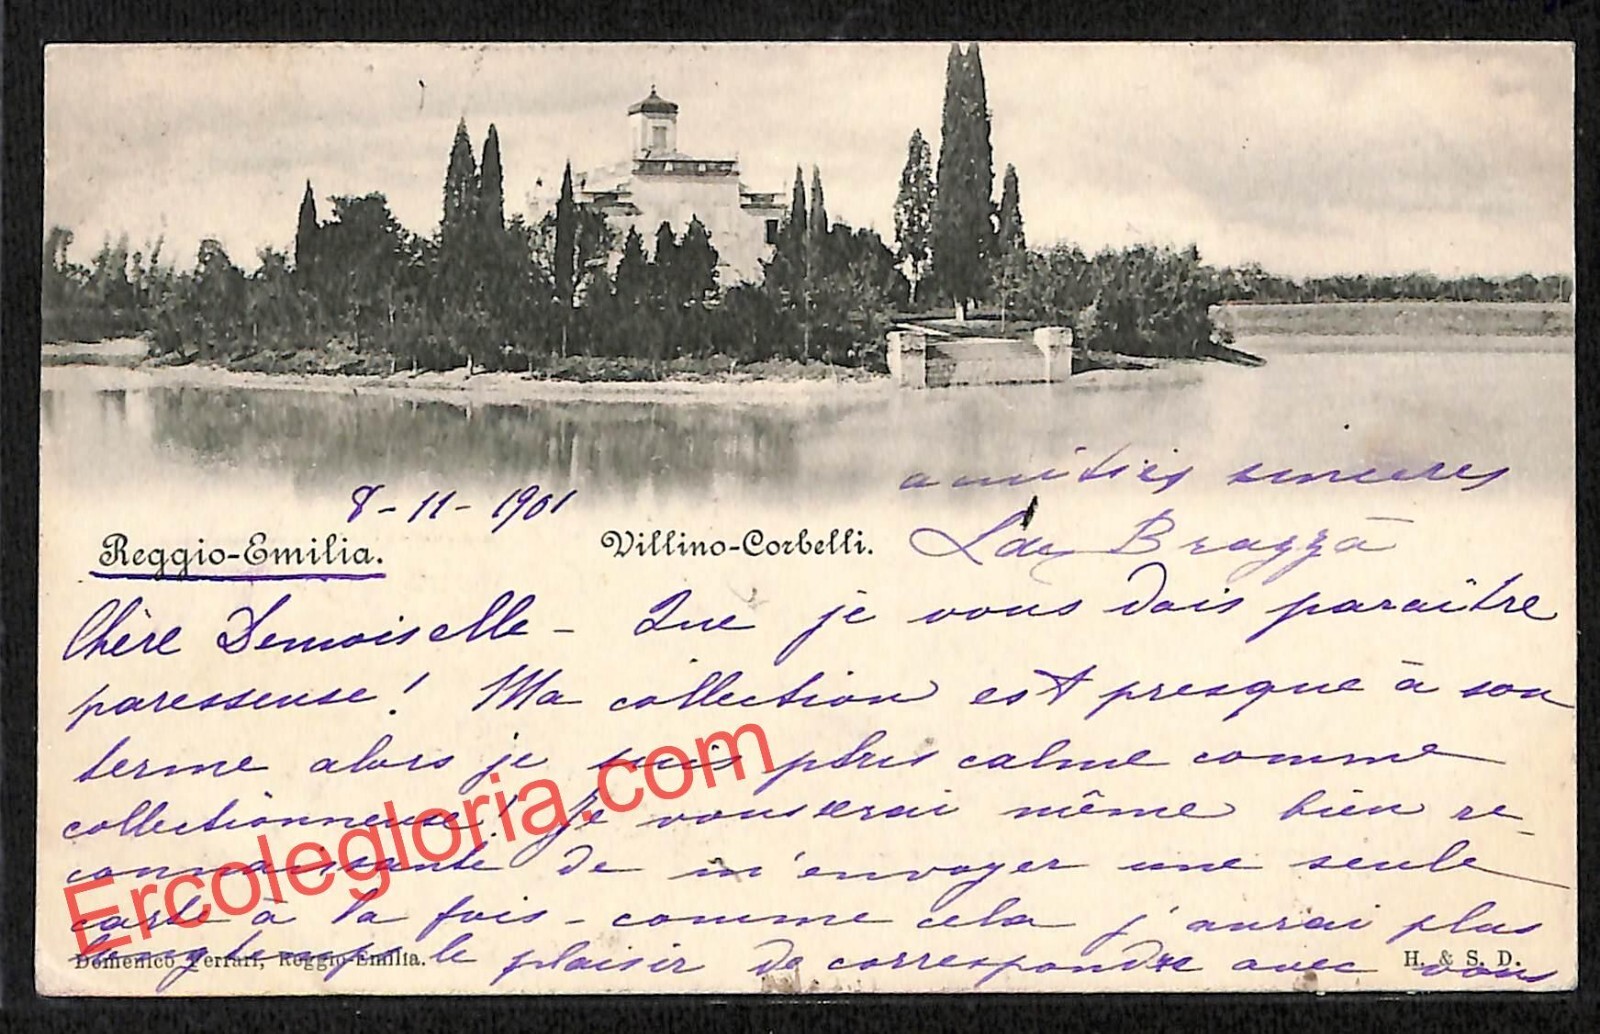 8-11-1901
amitiés sincères
Reggio-Emilia.
Villino-Corbelli.
L de Brazzà
Chère Demoiselle - Que je vous dois paraître
paresseuse! Ma collection est presque à son
terme alors je suis plus calme comme
collectionneuse! Je vous serai même bien re-
connaissante de m'envoyer une seule
carte à la fois - comme cela j'aurai plus
longtemps le plaisir de correspondre avec vous
Domenico Ferrari, Reggio-Emilia.
H. & S. D.
Ercolegloria.com